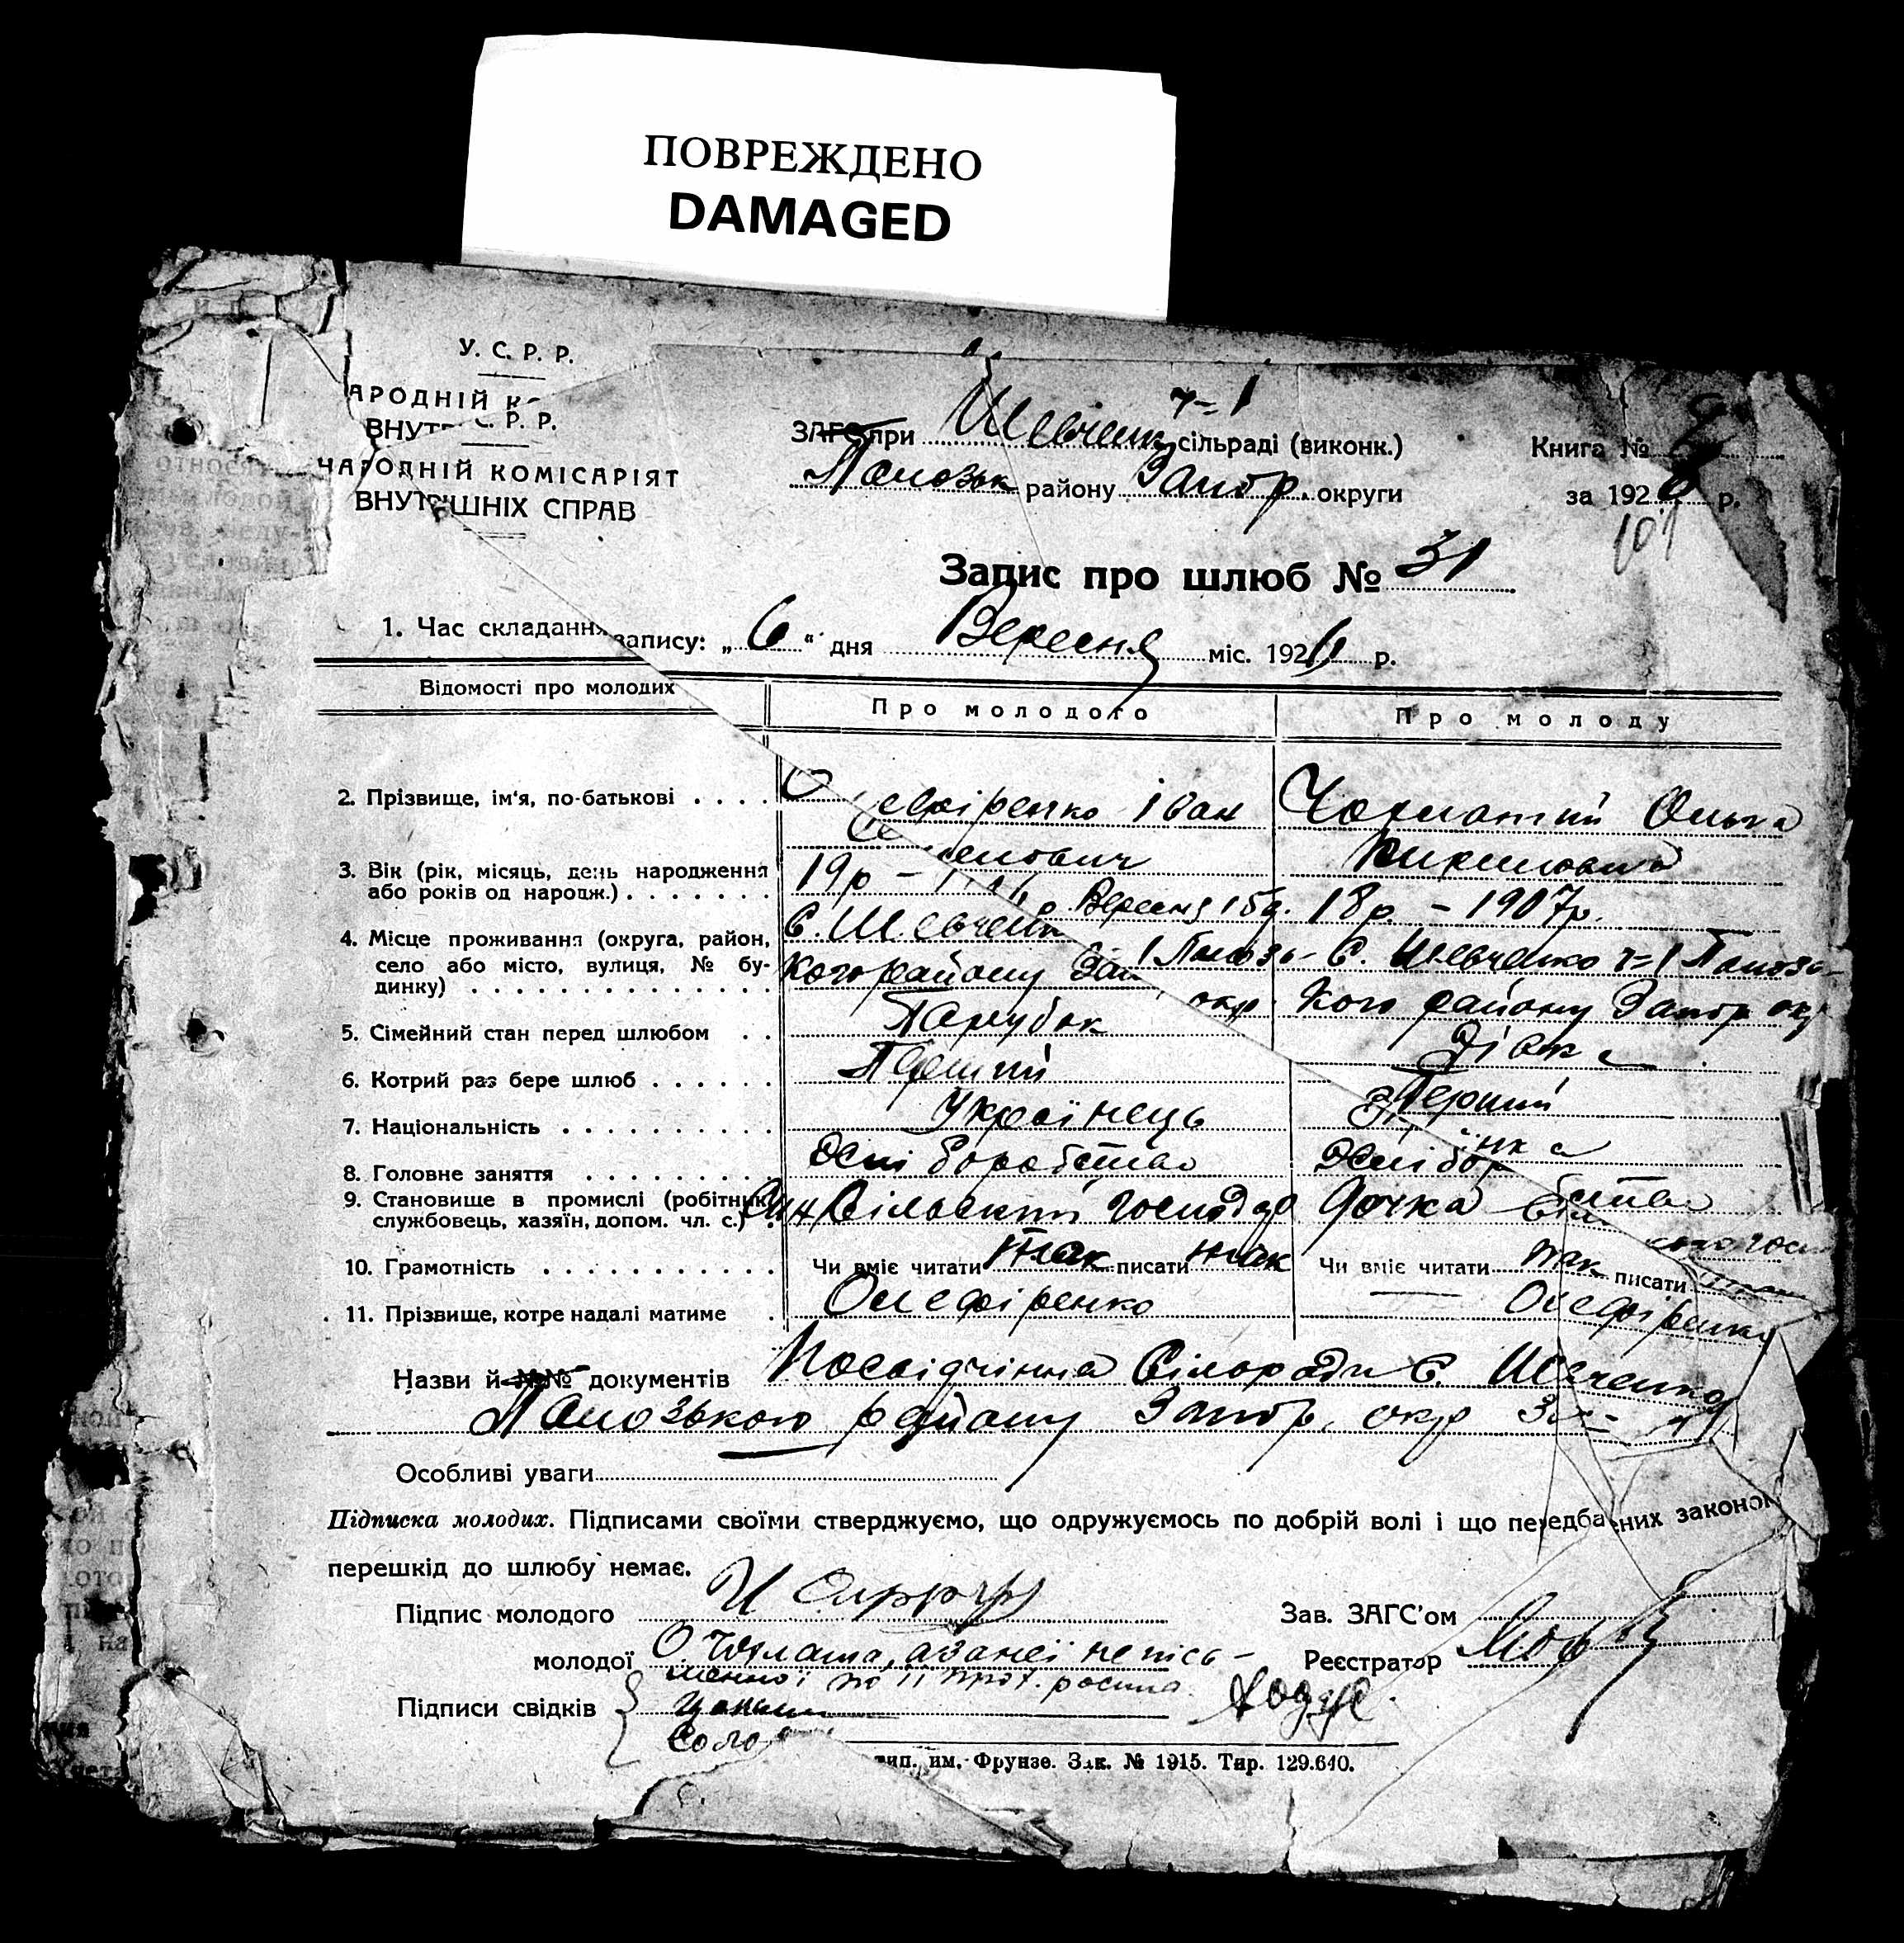 ПОВРЕЖДЕНО
DAMAGED
У. С. Р. Р.
АРОДНІЙ К
ВНУТ С. Р. Р.
НАРОДНІЙ КОМІСАРІЯТ
ВНУТРІШНІХ СПРАВ
ч=1
ЗАГС при Шевченк сільраді (виконк.)
Полозьк району Запор. округи
Книга №
за 1926 р.
101
Запис про шлюб № 31
1. Час складання запису: „ 6 “ дня Вересня міс. 1926 р.
Відомості про молодих
Про молодого
Про молоду
2. Прізвище, ім'я, по-батькові . . . .
О ефіренко Іван
Се менович
Чорматий Олька
3. Вік (рік, місяць, день народження
або років од народж.) . . . . . . .
19р – Вересня 15д.
18р. – 1907р.
4. Місце проживання (округа, район,
село або місто, вулиця, № бу-
динку) . . . . . . . . . . . . . .
С. Шевченк 1 Полозь-
кого району Зап окр.
С. Шевченко ч=1 Полозь-
кого району Запор окр
5. Сімейний стан перед шлюбом . .
Парубок
Дівка
6. Котрий раз бере шлюб . . . . . .
Перший
Перший
7. Національність . . . . . . . . . .
Українець
нка
8. Головне заняття . . . . . . . . .
9. Становище в промислі (робітник,
службовець, хазяїн, допом. чл. с.) .
Син Сільський господар
Дочка
10. Грамотність . . . . . . . . . . .
Чи вміє читати так писати так
Чи вміє читати так писати
11. Прізвище, котре надалі матиме .
Олефіренко
Олефіренко
Назви й №№ документів Посвідчення Сілоради С. Шевченко
Полозького району Запор. окр
Особливі уваги
Підписка молодих. Підписами своїми стверджуємо, що одружуємось по добрій волі і що передбачених законом
перешкід до шлюбу немає.
Підпис молодого
Зав. ЗАГС'ом
молодої
О. а за неї непись-
менної по її прох. росписа
Реєстратор
Підписи свідків
тип. им. Фрунзе. Зак. № 1915. Тир. 129.640.